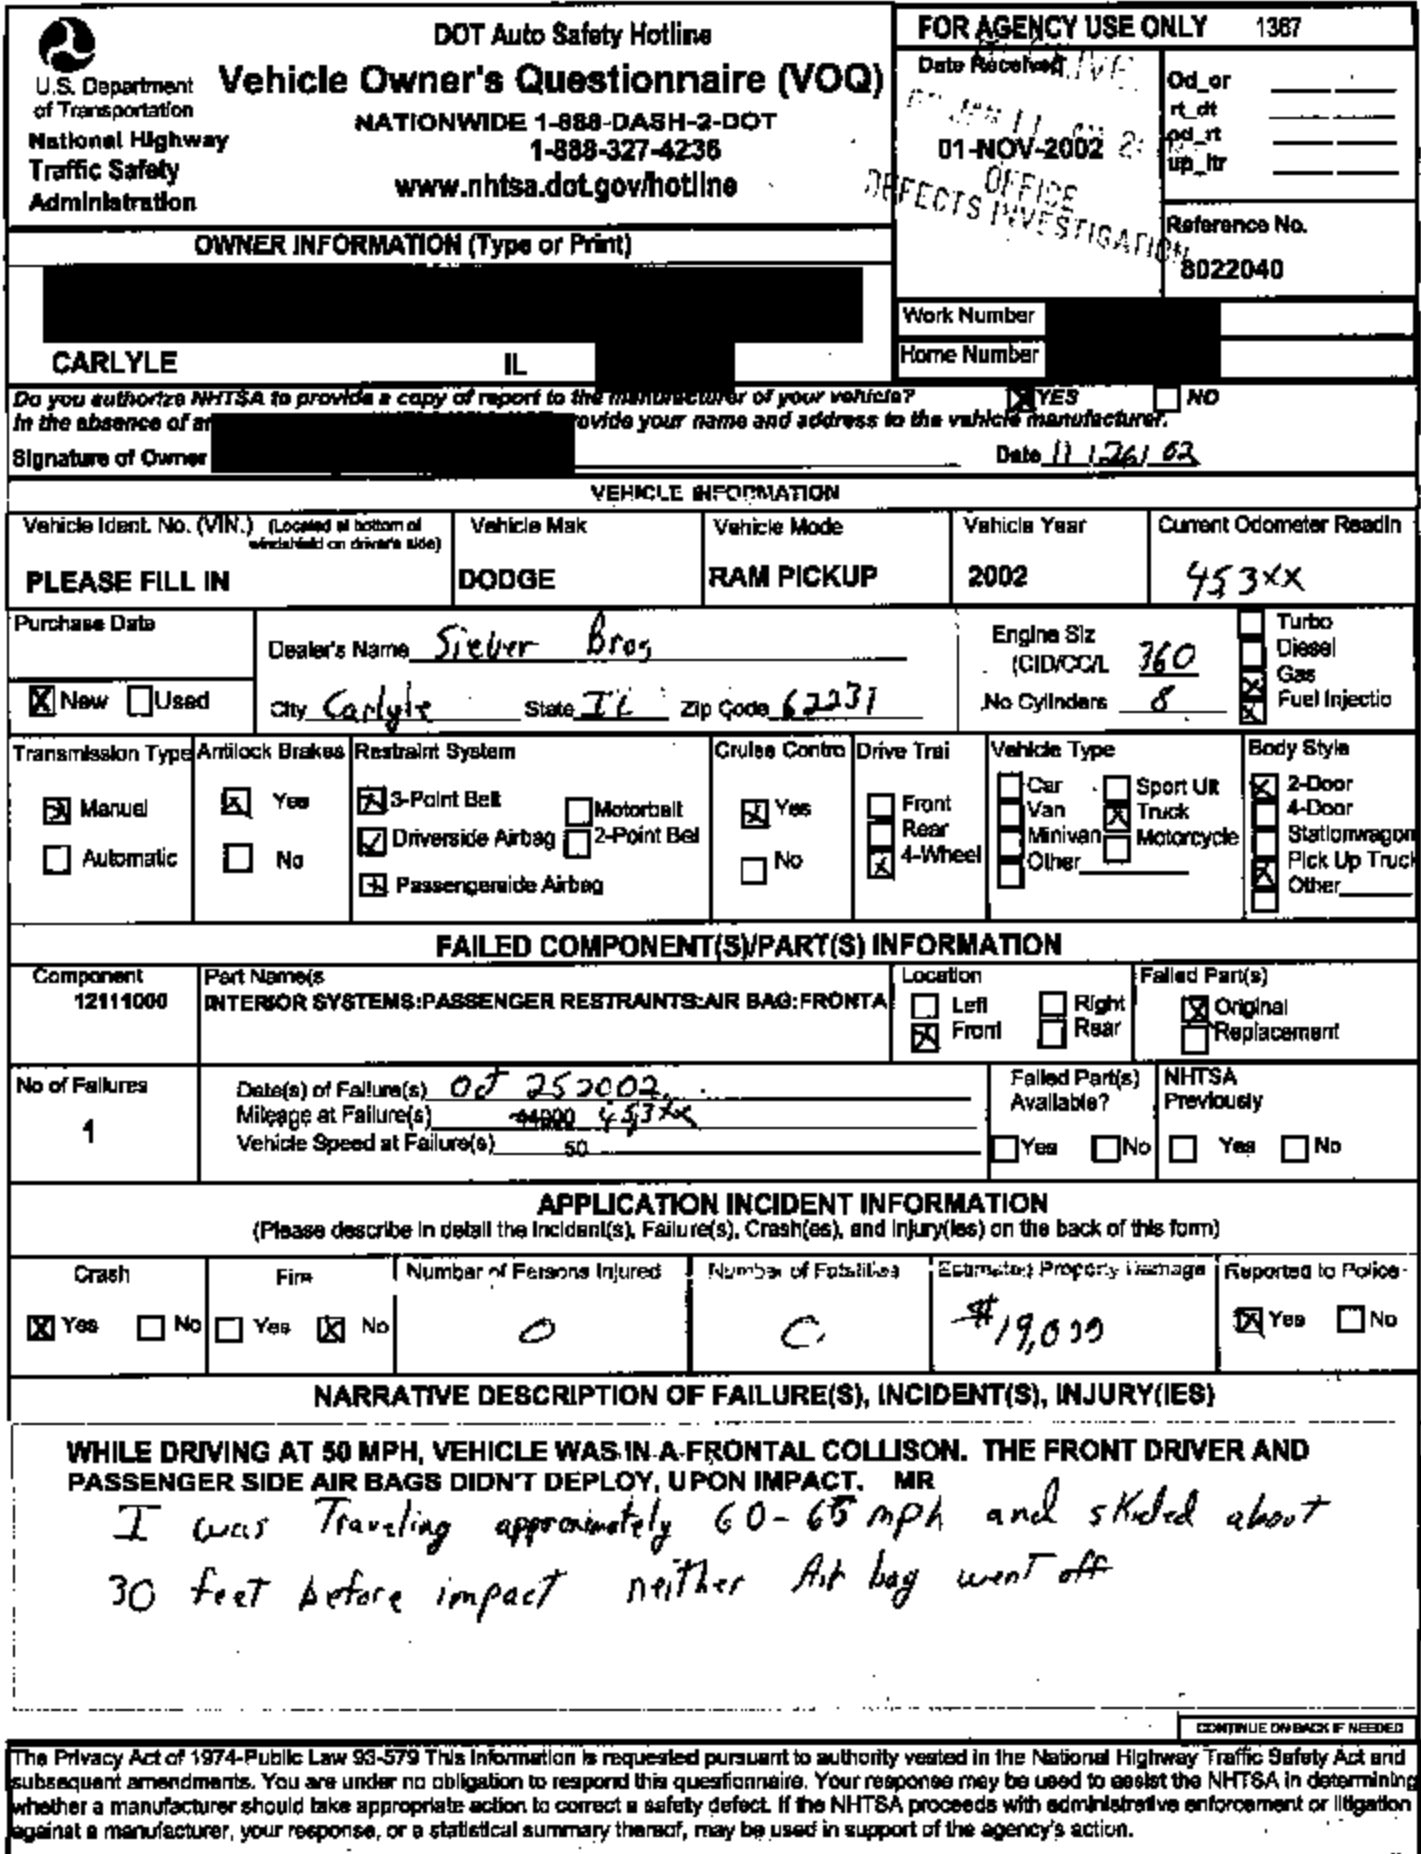 DOT Auto Safety Hotline
Vehicle Owner's Questionnaire (VOQ)
NATIONWIDE 1-888-DASH-2-DOT
1-888-327-4236
www.nhtsa.dot.gov/hotline
U.S. Department
of Transportation
National Highway
Traffic Safety
Administration
FOR AGENCY USE ONLY 1367
Date Received
01-NOV-2002
OFFICE
DEFECTS INVESTIGATION
Od_or
rt_dt
od_rt
up_ltr
Reference No.
8022040
OWNER INFORMATION (Type or Print)
CARLYLE IL
Work Number
Home Number
Do you authorize NHTSA to provide a copy of report to the manufacturer of your vehicle? YES NO
In the absence of an provide your name and address to the vehicle manufacturer.
Signature of Owner Date 11/26/02
VEHICLE INFORMATION
Vehicle Ident. No. (VIN.) (Located at bottom of windshield on driver's side)
PLEASE FILL IN
Vehicle Mak
DODGE
Vehicle Mode
RAM PICKUP
Vehicle Year
2002
Current Odometer Readin
453xx
Purchase Date
New Used
Dealer's Name Sieber Bros
City Carlyle State IL Zip Code 62231
Engine Siz
(CID/CC/L 360
No Cylinders 8
Turbo
Diesel
Gas
Fuel Injectio
Transmission Type
Manual
Automatic
Antilock Brakes
Yes
No
Restraint System
3-Point Belt
Driverside Airbag
Passengerside Airbag
Motorbelt
2-Point Bel
Cruise Contro
Yes
No
Drive Trai
Front
Rear
4-Wheel
Vehicle Type
Car
Van
Minivan
Other
Sport Ut
Truck
Motorcycle
Body Style
2-Door
4-Door
Stationwagon
Pick Up Truck
Other
FAILED COMPONENT(S)/PART(S) INFORMATION
Component
12111000
Part Name(s
INTERIOR SYSTEMS:PASSENGER RESTRAINTS:AIR BAG:FRONTA
Location
Left Right
Front Rear
Failed Part(s)
Original
Replacement
No of Failures
1
Date(s) of Failure(s) Oct 25 2002
Mileage at Failure(s) 44000 453xx
Vehicle Speed at Failure(s) 50
Failed Part(s)
Available?
Yes No
NHTSA
Previously
Yes No
APPLICATION INCIDENT INFORMATION
(Please describe in detail the Incident(s), Failure(s), Crash(es), and Injury(ies) on the back of this form)
Crash
Yes No
Fire
Yes No
Number of Persons Injured
0
Number of Fatalities
0
Estimated Property Damage
$19,000
Reported to Police
Yes No
NARRATIVE DESCRIPTION OF FAILURE(S), INCIDENT(S), INJURY(IES)
WHILE DRIVING AT 50 MPH, VEHICLE WAS IN A FRONTAL COLLISON. THE FRONT DRIVER AND
PASSENGER SIDE AIR BAGS DIDN'T DEPLOY, UPON IMPACT. MR
I was Traveling approximately 60-65 mph and skided about
30 feet before impact neither Air bag went off
CONTINUE ON BACK IF NEEDED
The Privacy Act of 1974-Public Law 93-579 This Information is requested pursuant to authority vested in the National Highway Traffic Safety Act and
subsequent amendments. You are under no obligation to respond this questionnaire. Your response may be used to assist the NHTSA in determining
whether a manufacturer should take appropriate action to correct a safety defect. If the NHTSA proceeds with administrative enforcement or litigation
against a manufacturer, your response, or a statistical summary thereof, may be used in support of the agency's action.